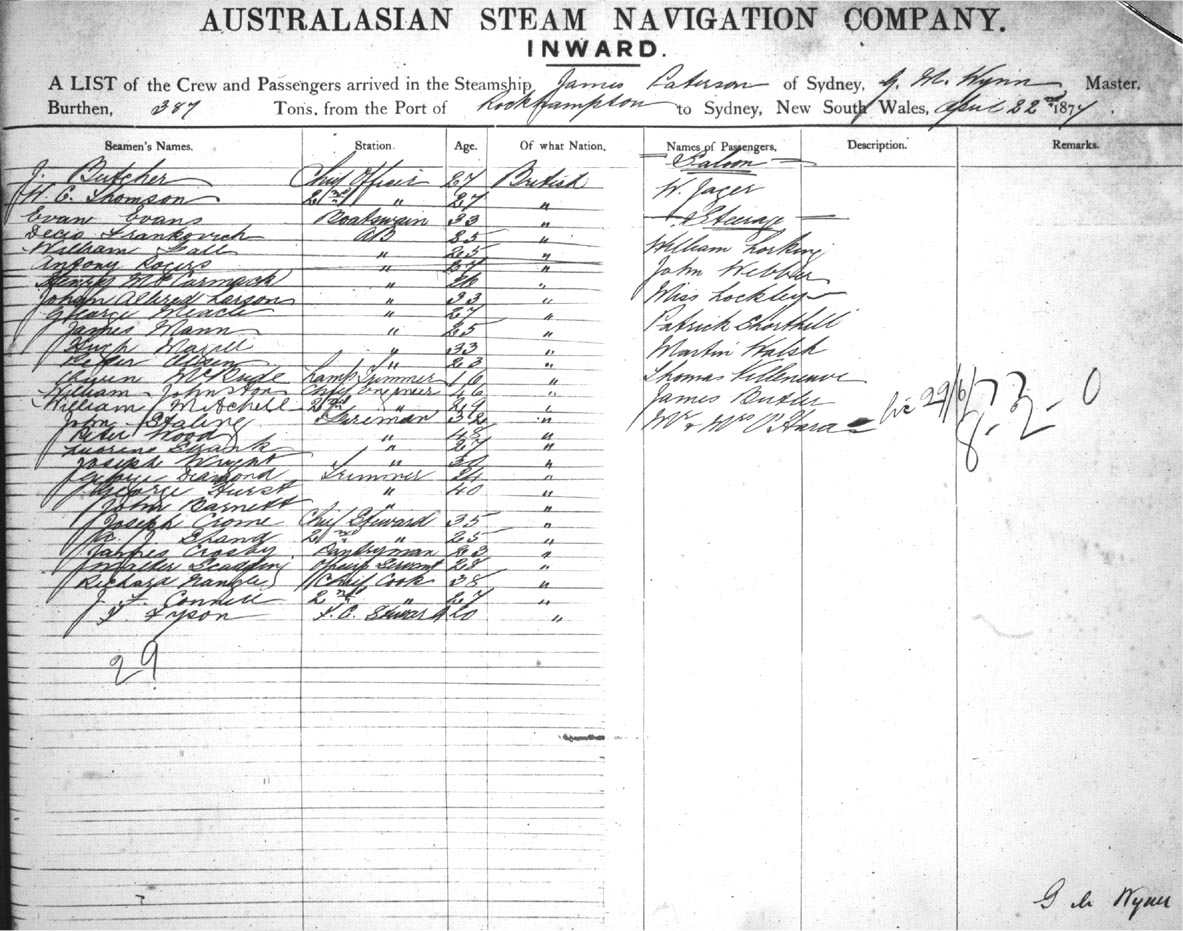 AUSTRALASIAN STEAM NAVIGATION COMPANY.
INWARD.
A LIST of the Crew and Passengers arrived in the Steamship James Paterson of Sydney, G. M. Wynn Master,
Burthen, 387 Tons, from the Port of Rockhampton to Sydney, New South Wales, April 22nd 1877.
Seamen's Names. Station. Age. Of what Nation. Names of Passengers. Description. Remarks.
Saloon
J. Butcher Chief Officer 27 British
W. Jager
H. C. Thomson 2nd " 27 "
Evan Evans Boatswain 33 "
Steerage
Decio Frankovich AB 25 "
William " 25 "
William Lorking
Antony Rogers " 27 "
John Webber
Henry McCormack " "
Johan Alfred Larson " 33 "
Miss Lockley
George " 27 "
James Mann " 25 "
Patrick Shorthill
Hugh " 33 "
Martin Walsh
Peter 23 "
Owen McRude Lamp Trimmer 16 "
Thomas Villeneuve
William Johnston Chief Engineer 46 "
James Butler
William Mitchell 2nd " 29 "
John Staling Fireman 32 "
Mr & Mrs O'Hara
29/6/73 - 0
8
Peter Wood " 43 "
Shank " 27 "
Joseph Wright " 30 "
George Diamond Trimmer 24 "
George Hurst " 40 "
John Barnett " "
Joseph Crome Chief Steward 35 "
Shand 2nd " 25 "
James Crosby Pantryman 23 "
Walter Officers Servant 28 "
Richard Chief Cook 38 "
J. F. Connell 2nd " 27 "
T. Tyson F. C. Steward 20 "
29
G M Wynn